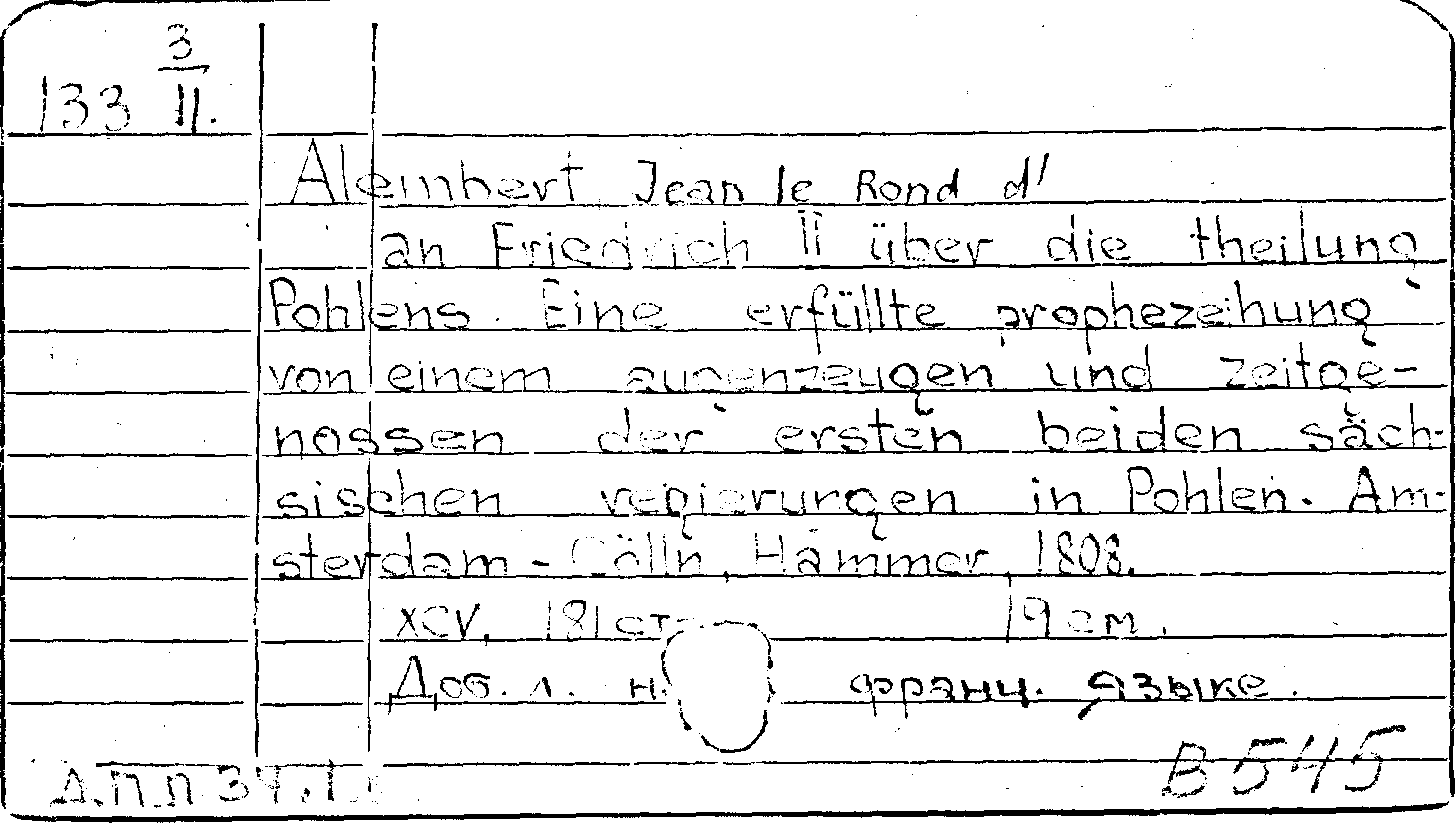 133 3/II.
Alembert Jean le Rond d'
an Friedrich II über die theilung
Pohlens. Eine erfüllte prophezeihung
von einem augenzeugen und zeitge-
nossen der ersten beiden säch-
sischen regierungen in Pohlen. Am-
sterdam - Cölln, Hammer, 1808.
XCV, 181 ст. 19 см.
Доб. л. н. франц. языке.
В 545